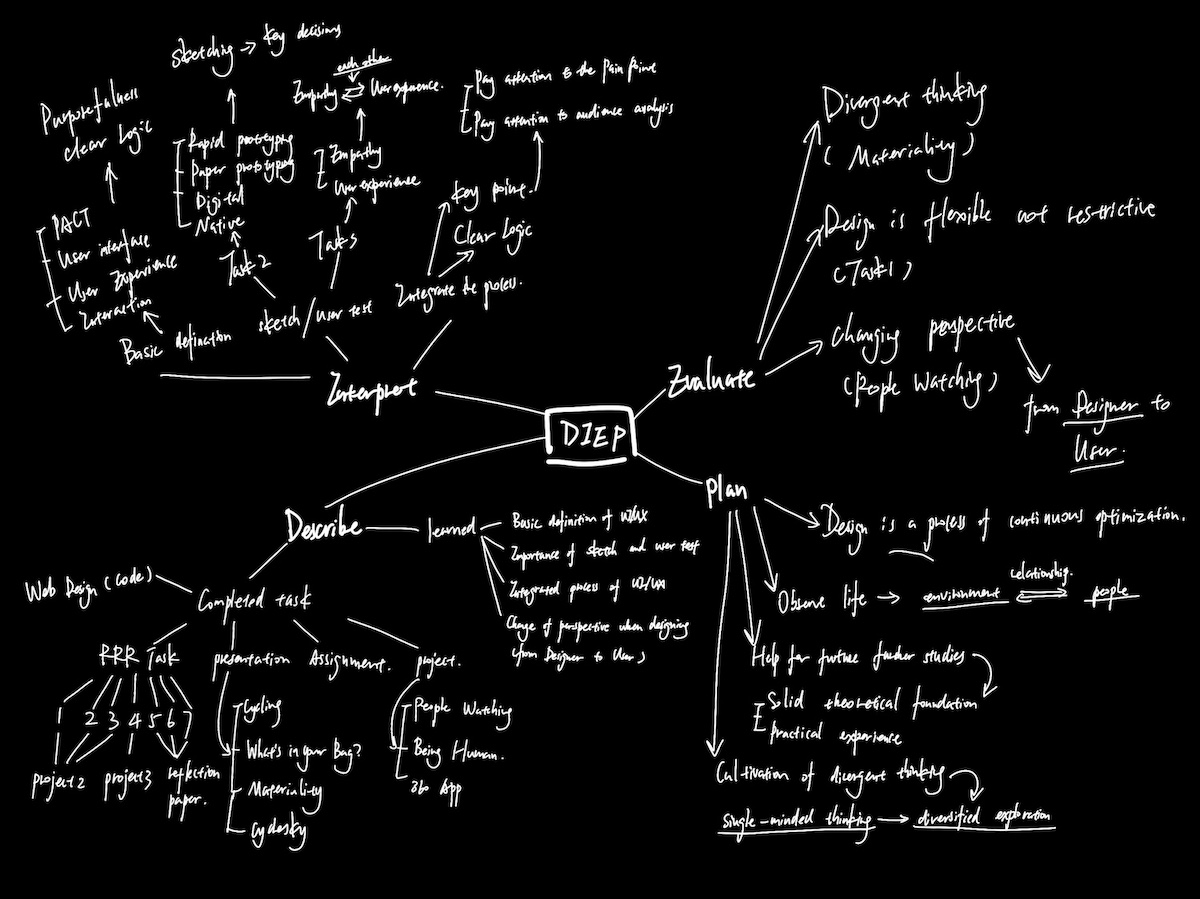 Sketching → Key decisions
Purposefulness
clear logic
each other
Empathy ⇌ User experience.
Pay attention to the Pain Point
Pay attention to audience analysis
Rapid prototyping
Paper prototyping
Digital
Native
Empathy
User experience
Key point.
Clear Logic
PACT
User interface
User Experience
Interaction
Task 2
Task 5
Basic defination
sketch/User test
Integrate the process.
Interpret
Divergent thinking
(Materiality)
Design is flexible not restrictive
(Task1)
Changing perspective
(People Watching)
from Designer to
User.
Evaluate
DIEP
Plan
Design is a process of continuous optimization.
Observe life → environment ⇌ people
relationship.
Help for future further studies
Solid theoretical foundation
practical experience
Cultivation of divergent thinking
single-minded thinking → diversified exploration
Describe
learned
Basic definition of UI/UX
Importance of sketch and user test
Integrated process of UI/UX
Change of perspective when designing
(from Designer to User)
Web Design (code)
Completed task
RRR Task
presentation
Assignment.
project.
1 2 3 4 5 6 7
project2
project3
reflection
paper.
Cycling
What's in your Bag?
Materiality
Cydesky
People Watching
Being Human.
360 App